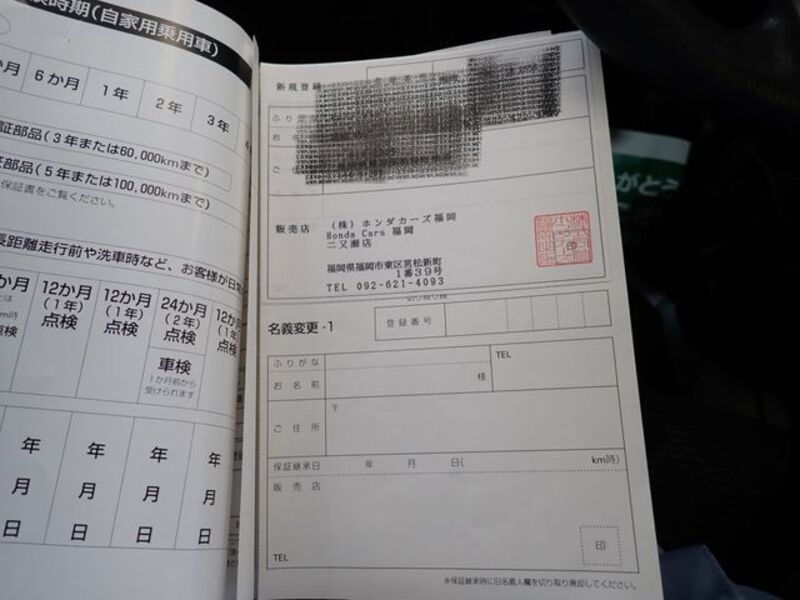 時期(自家用乗用車)
か月
6か月
1年
2年
3年
証部品(3年または60,000kmまで)
証部品(5年または100,000kmまで)
保証書をご覧ください。
長距離走行前や洗車時など、お客様が日
12か月
(1年)
点検
12か月
(1年)
点検
24か月
(2年)
点検
車検
1か月前から
受けられます
12か月
(1年)
点検
年
年
年
年
月
月
月
月
日
日
日
日
新規登録
ふり
販売店
(株)ホンダカーズ福岡
Honda Cars 福岡
二又瀬店
福岡県福岡市東区筥松新町
1番39号
TEL 092-621-4093
切り取り線
名義変更-1
登録番号
ふりがな
お名前
様
TEL
ご住所
〒
保証継承日
年
月
日(
km時)
販売店
TEL
印
※保証継承時に旧名義人欄を切り取り廃却してください。
がとう